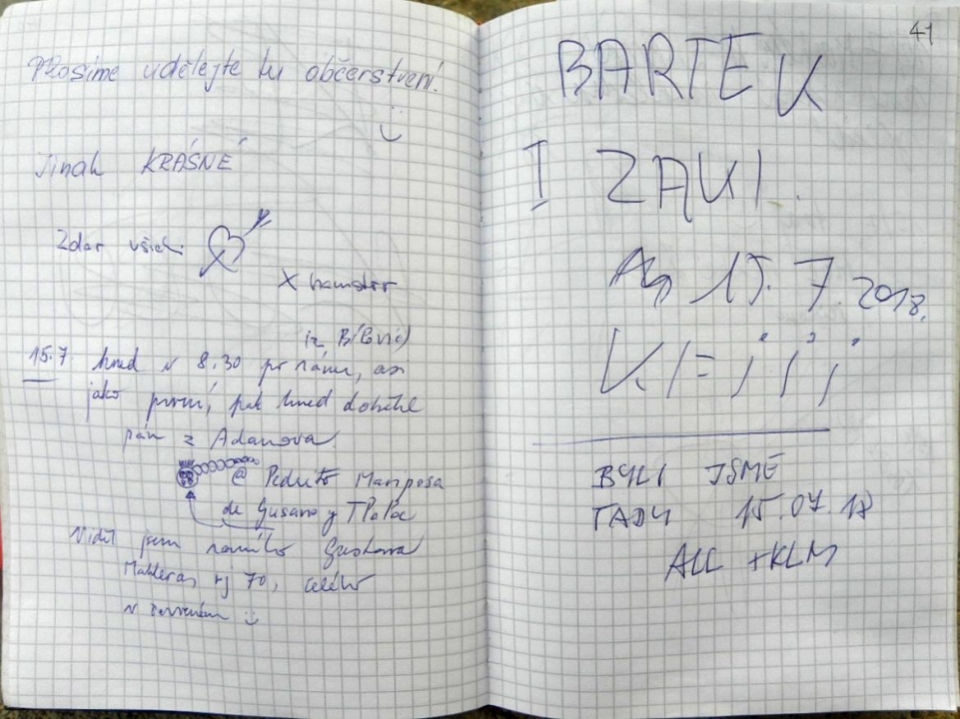 Prosíme udělejte tu občerstvení.
Jinak KRÁSNÉ
Zdar všich.
X hamster
15.7 hned v 8.30 po ránu, asi
jako první, pak hned doběhl
pán z Adamova
@ Peduto Mariposa
de Gusano y TPoPoc
Viděl jsem ranního Gustava
rj 70, celého
v červeném
41
BARTEK
I ZAUI.
15.7.2018.
BYLI JSME
TADY 15.07.18
ALC + KLM